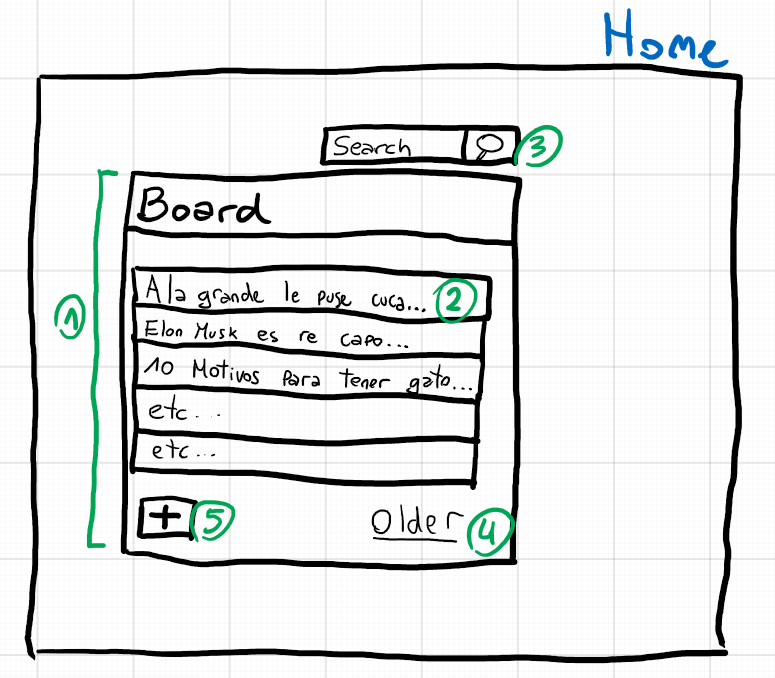 Home
Search 3
Board
1
A la grande le puse cuca... 2
Elon Musk es re capo...
10 Motivos para tener gato...
etc...
etc...
+ 5 Older 4